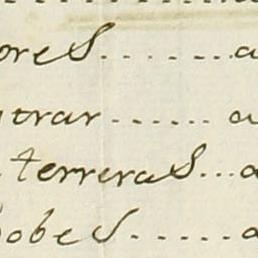 ores........a
trar......a
terreras...a
obes......a